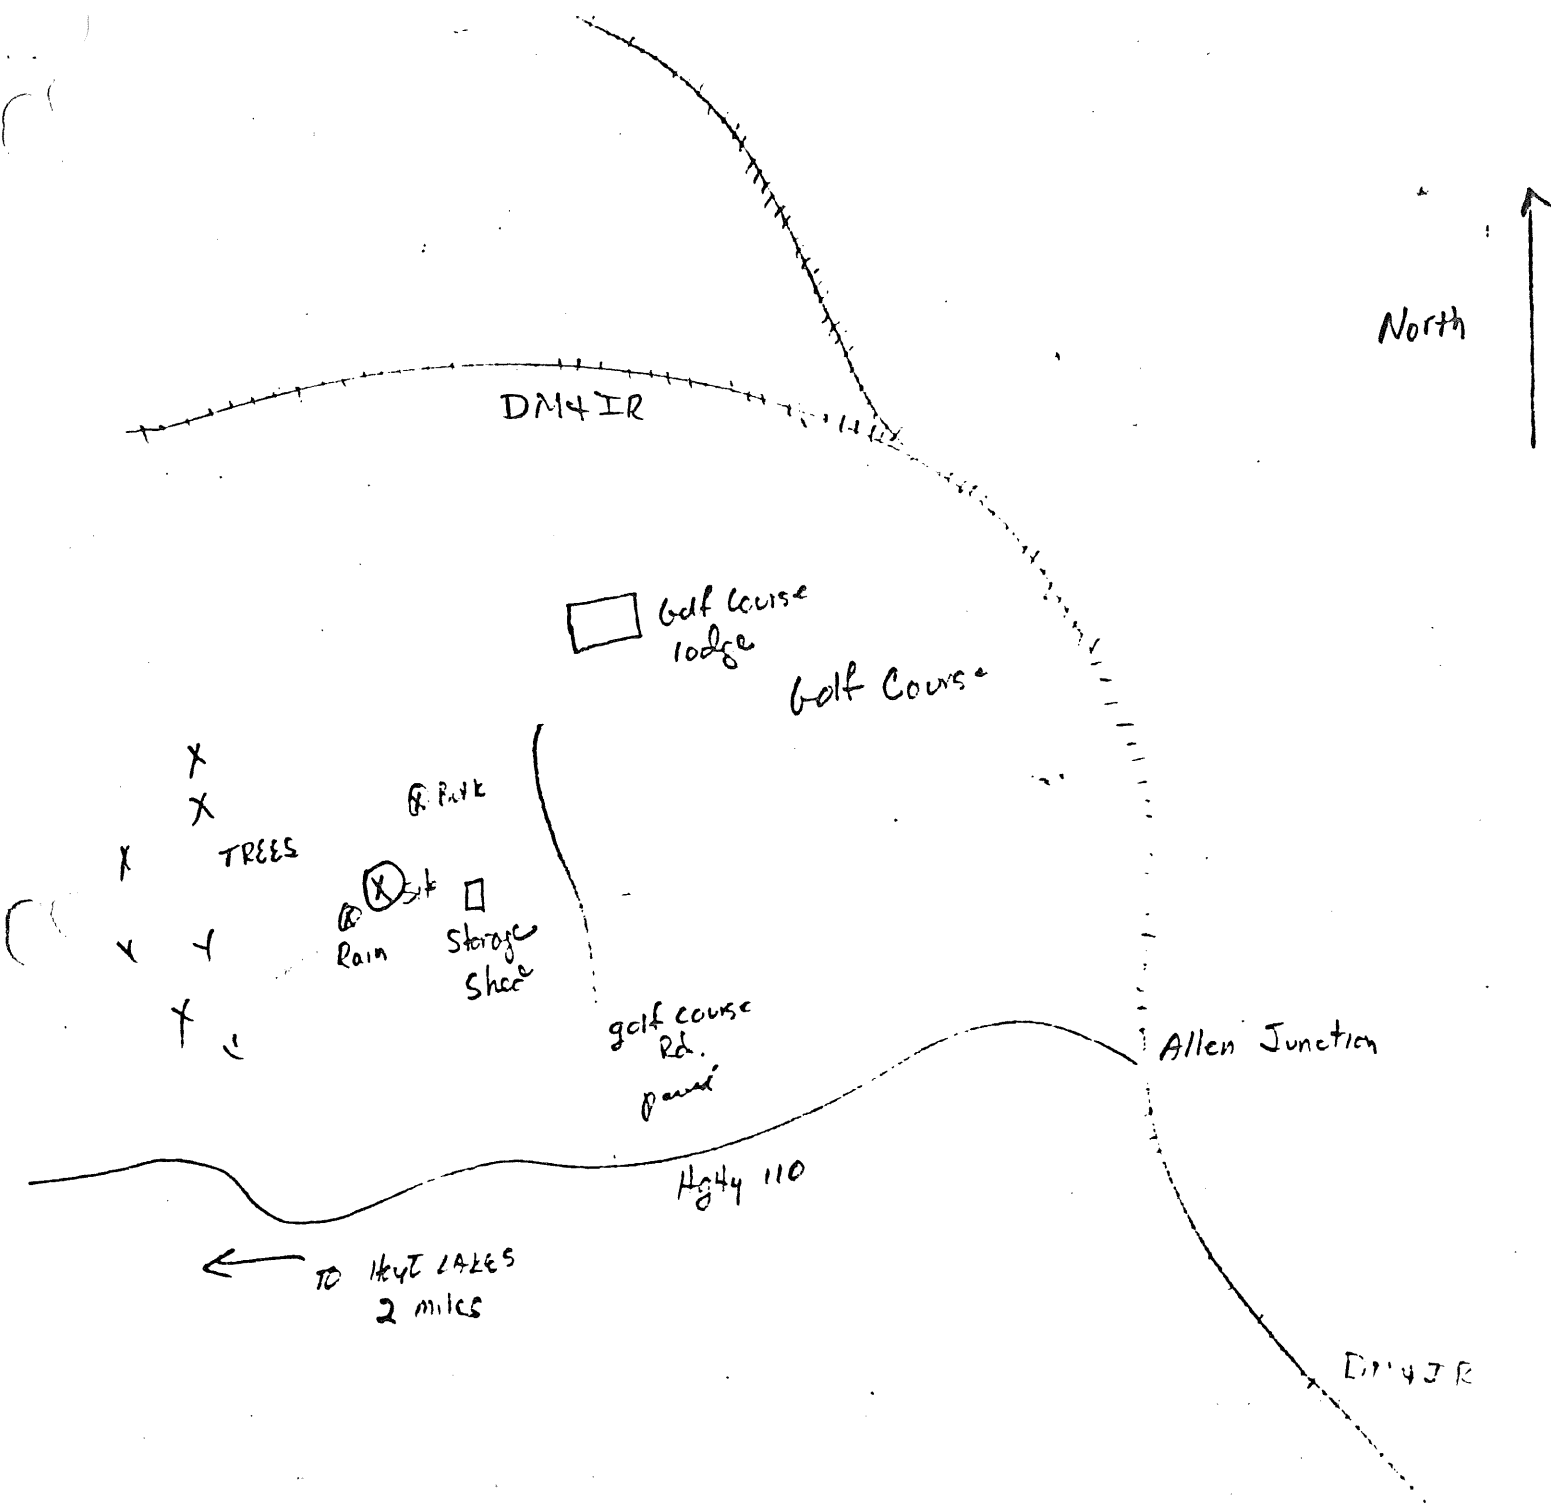 North
DM&IR
Golf Course
lodge
Golf Course
TREES
Rain
Storage
Shed
golf course
Rd.
paved
Allen Junction
Hgwy 110
TO Hoyt LAKES
2 miles
DM&IR